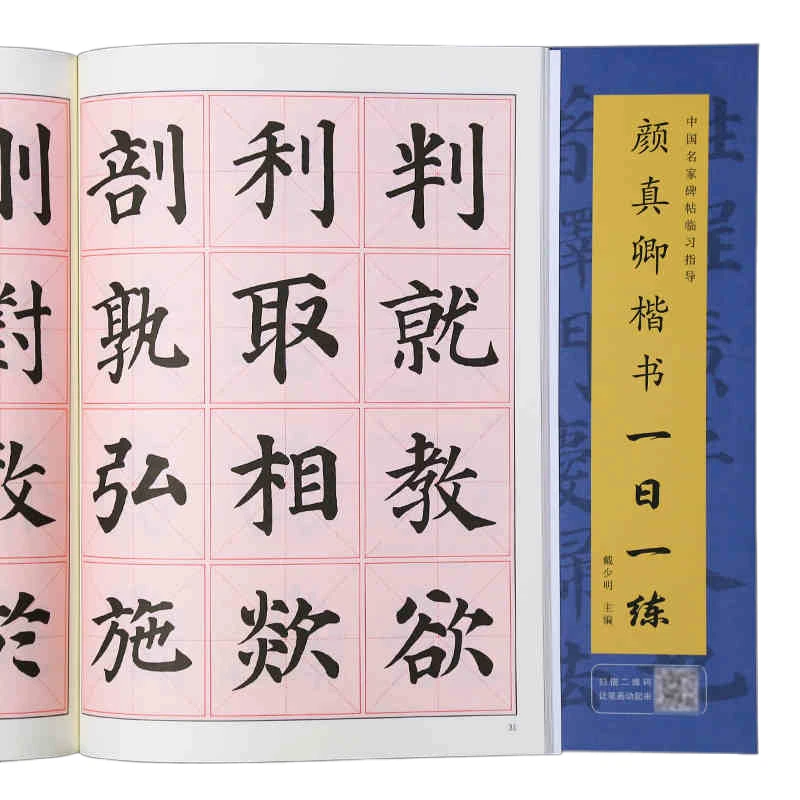 判就教欲
利取相欻
剖孰弘施
31
中国名家碑帖临习指导
颜真卿楷书一日一练
戴少明 主编
扫描二维码
让笔画动起来